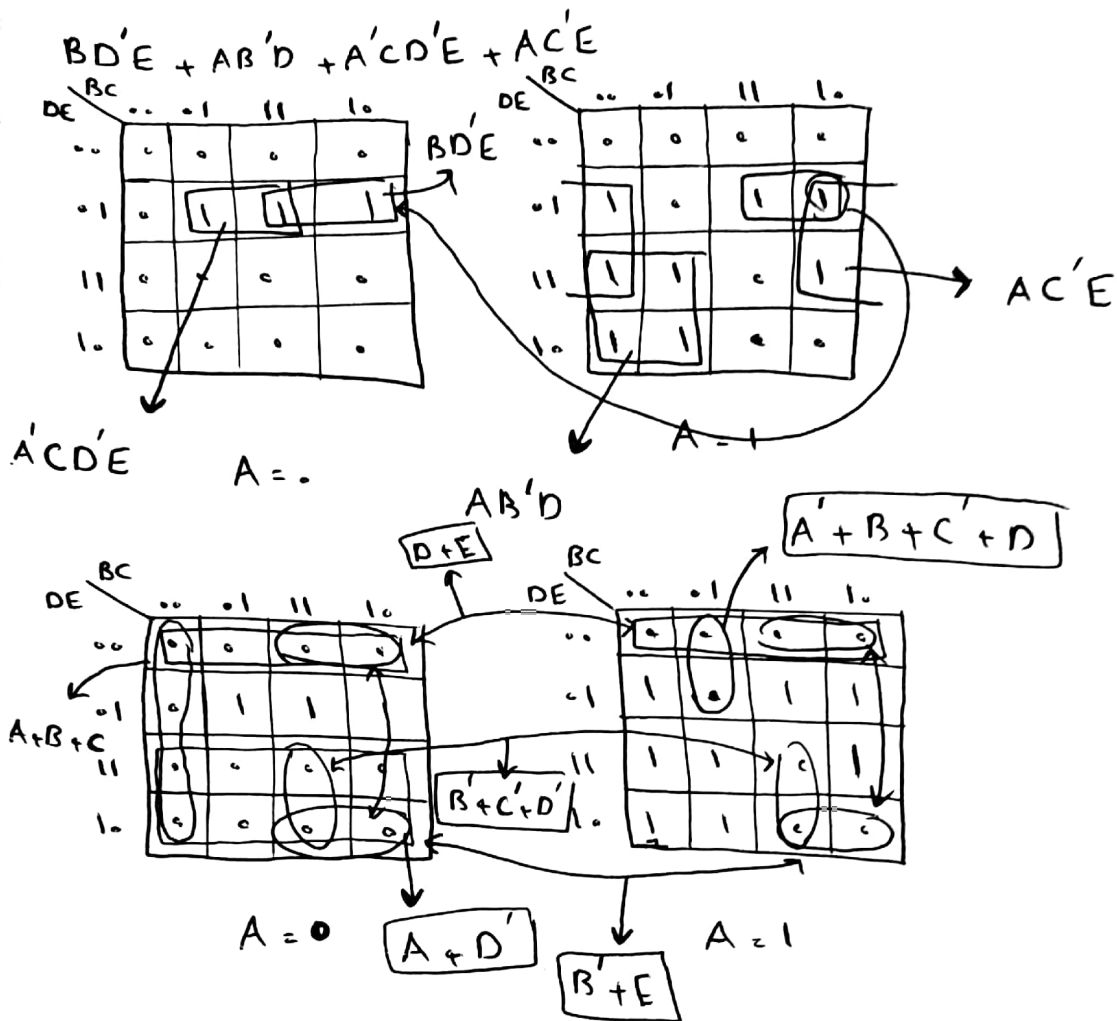 BD'E + AB'D + A'CD'E + AC'E
BC
DE 00 01 11 10
00 0 0 0 0
01 0 1 1 1
11 0 0 0 0
10 0 0 0 0
BD'E
A'CD'E
A = 0
BC
DE 00 01 11 10
00 0 0 0 0
01 1 0 1 1
11 1 1 0 1
10 1 1 0 0
AC'E
A = 1
AB'D
D + E
A' + B + C' + D
BC
DE 00 01 11 10
00 0 0 0 0
01 0 1 1 1
11 0 0 0 0
10 0 0 0 0
A + B + C
B' + C' + D'
A = 0
A + D'
BC
DE 00 01 11 10
00 0 0 0 0
01 1 0 1 1
11 1 1 0 1
10 1 1 0 0
A = 1
B' + E